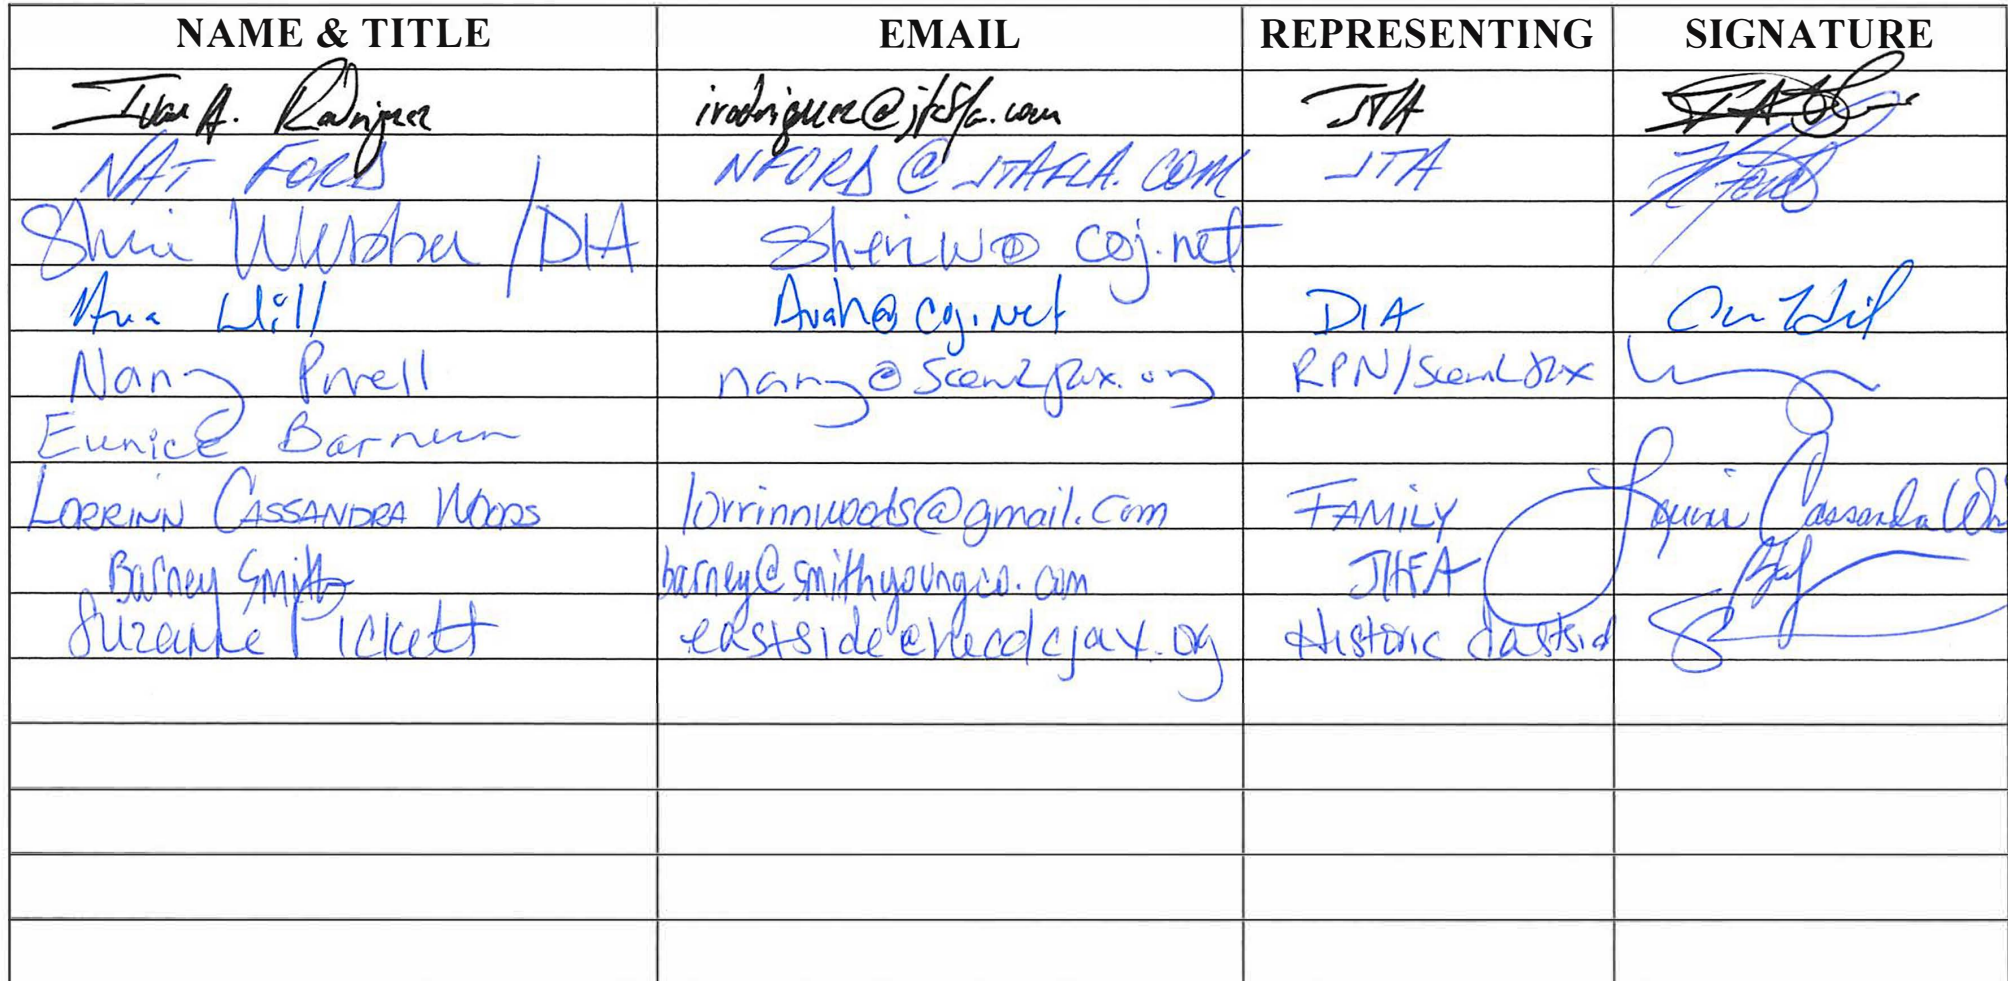 NAME & TITLE EMAIL REPRESENTING SIGNATURE
Ivan A. Rodriguez irodriguez@jtafla.com JTA
NAT FORD NFORD@JTAFLA.COM JTA N Ford
Sheri Webber /DIA Sheriw@coj.net
Ava Hill Avah@coj.net DIA
Nancy Powell nancy@scenicjax.org RPN/ScenicJax
Eunice Barnum
LORRINN CASSANDRA WOODS lorrinnwoods@gmail.com FAMILY Lorrinn Cassandra
Barney Smith barney@smithyoungco.com JHFA
Suzanne Pickett eastside@hecdcjax.org Historic Eastsid